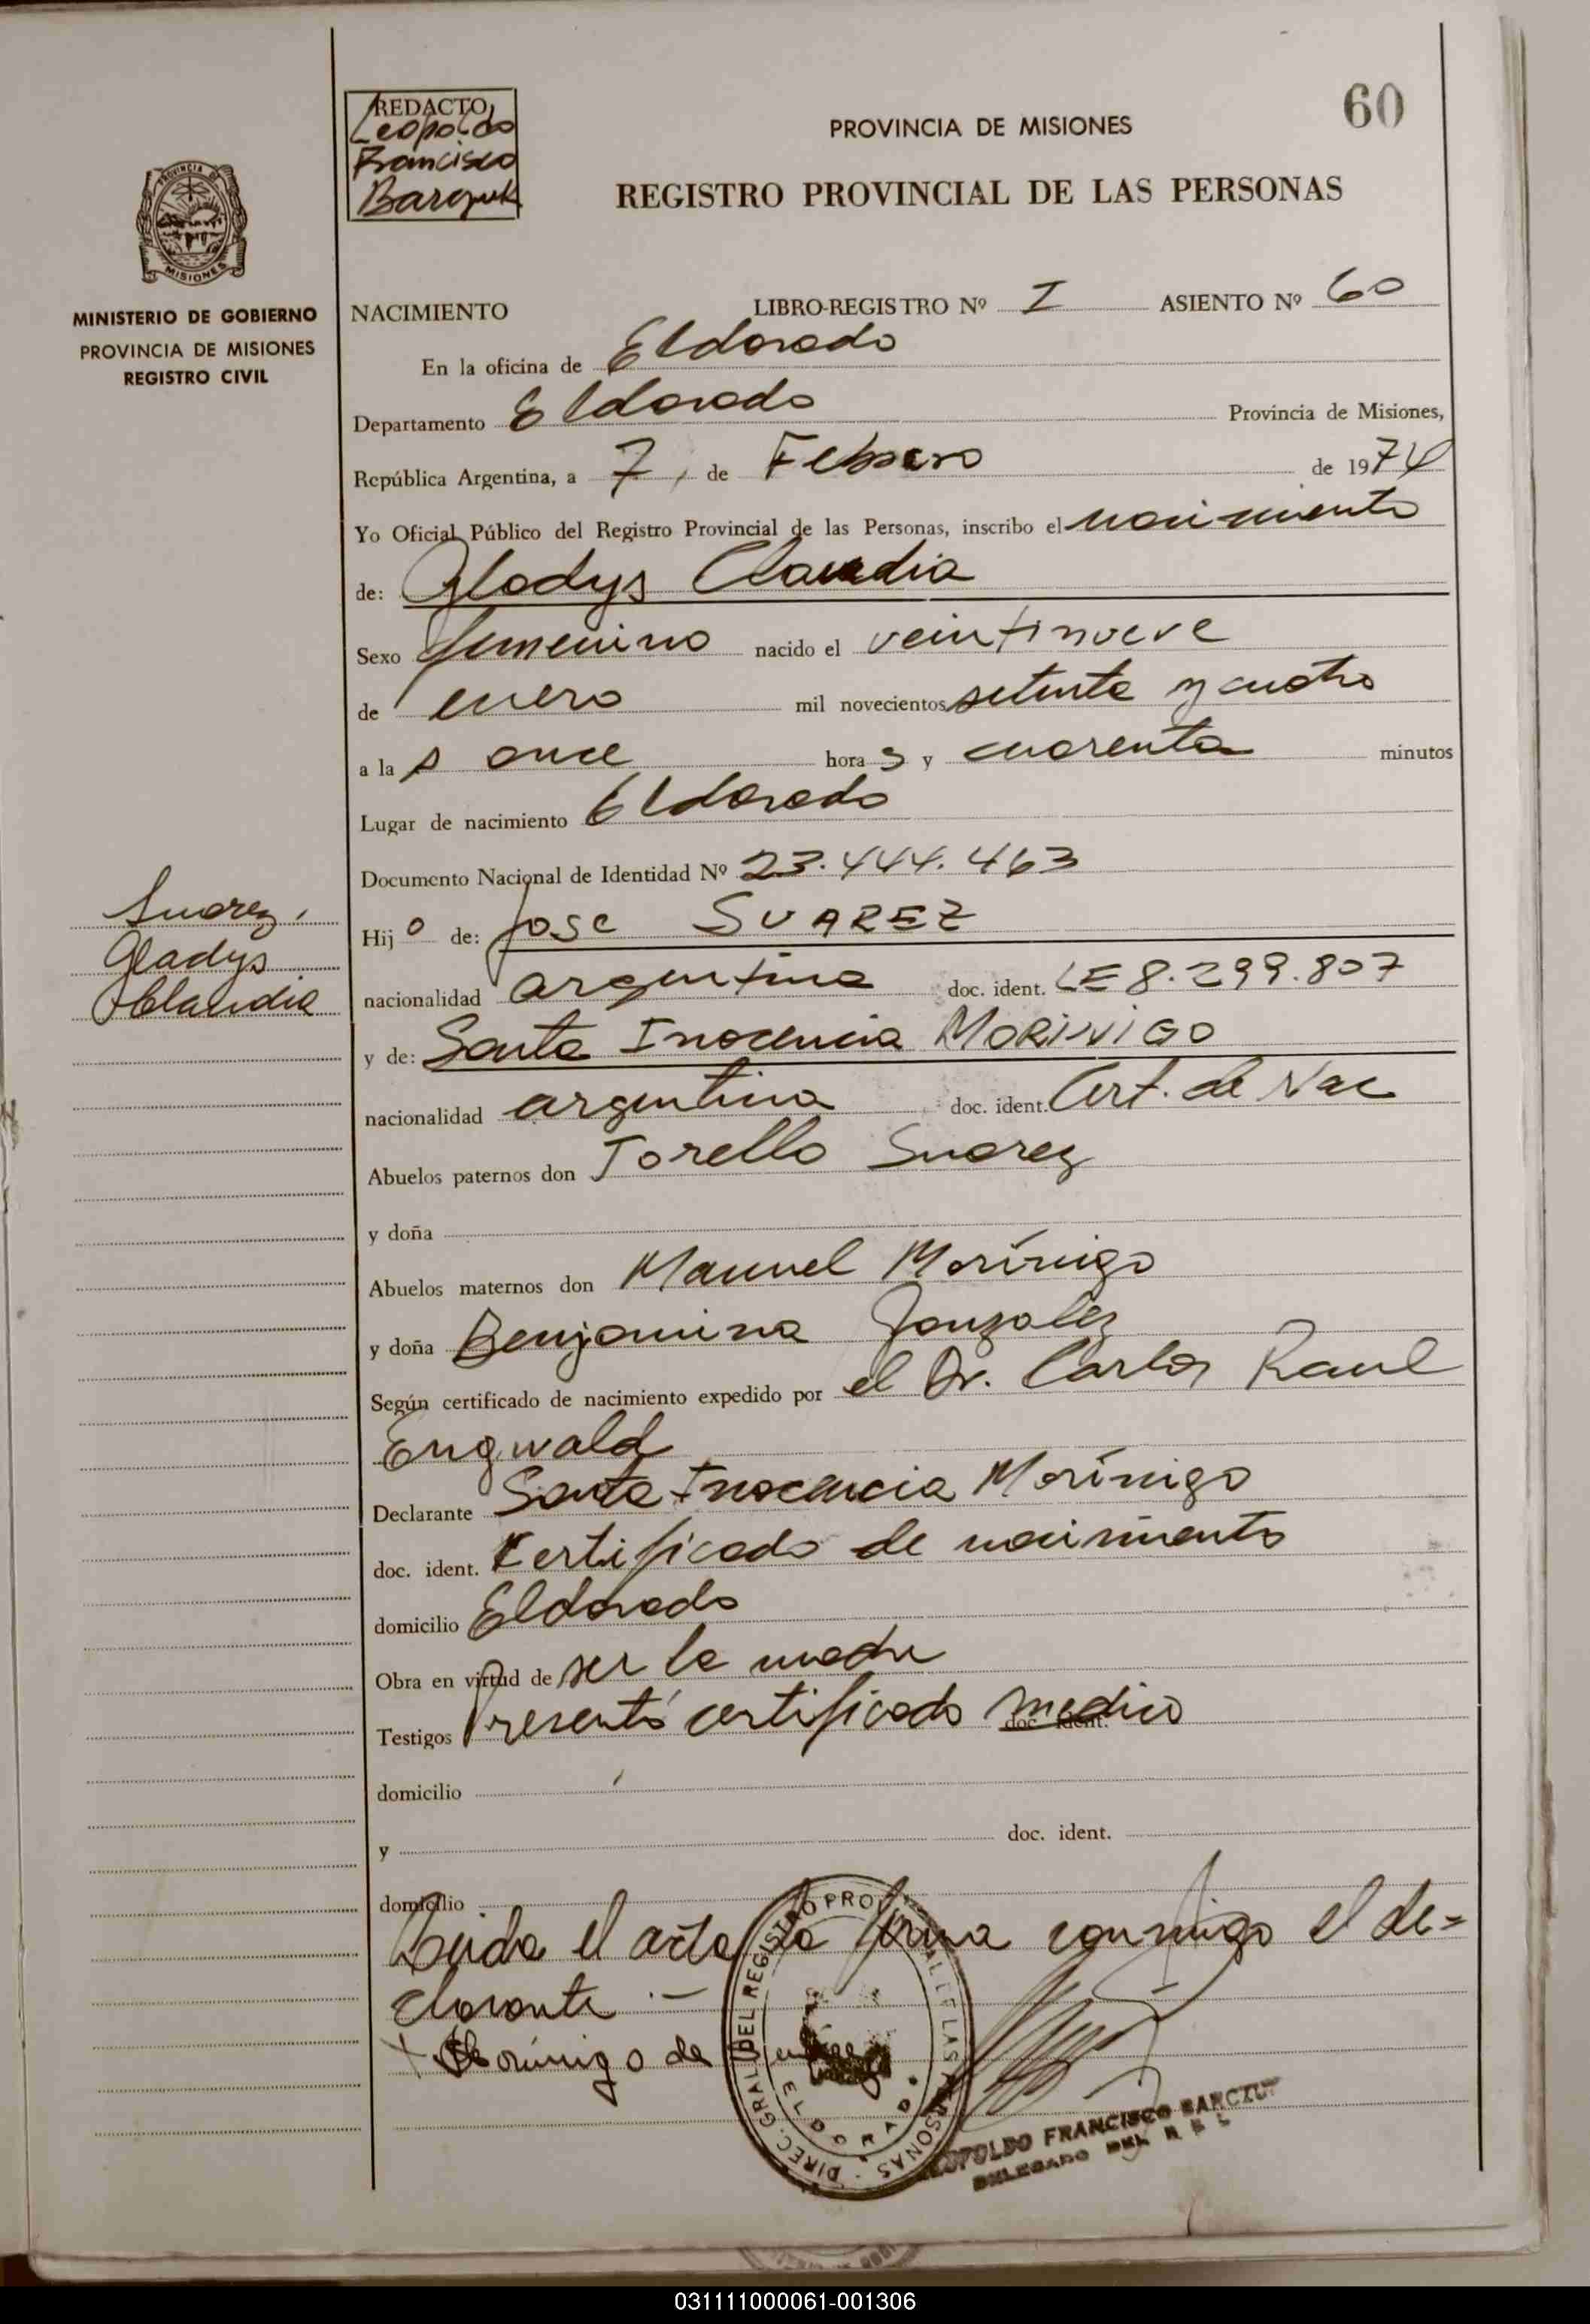 60
REDACTO
Leopoldo
Francisco
PROVINCIA DE MISIONES
REGISTRO PROVINCIAL DE LAS PERSONAS
PROVINCIA DE
MISIONES
MINISTERIO DE GOBIERNO
PROVINCIA DE MISIONES
REGISTRO CIVIL
NACIMIENTO LIBRO-REGISTRO Nº I ASIENTO Nº 60
En la oficina de Eldorado
Departamento Eldorado Provincia de Misiones,
República Argentina, a 7 de Febrero de 1974
Yo Oficial Público del Registro Provincial de las Personas, inscribo el nacimiento
de: Gladys Claudia
Sexo femenino nacido el veintinueve
de enero mil novecientos setenta y cuatro
a las once horas y cuarenta minutos
Lugar de nacimiento Eldorado
Documento Nacional de Identidad Nº 23.444.463
Suarez,
Gladys
Claudia
Hijo de: Jose SUAREZ
nacionalidad argentina doc. ident. LE 8.299.807
y de: Santa Inocencia MORINIGO
nacionalidad argentina doc. ident. Cert. de Nac
Abuelos paternos don Torello Suarez
y doña
Abuelos maternos don Manuel Morínigo
y doña Benjamina Gonzalez
Según certificado de nacimiento expedido por el Dr. Carlos Raul
Engwald
Declarante Santa Inocencia Morínigo
doc. ident. Certificado de nacimiento
domicilio Eldorado
Obra en virtud de ser la madre
Testigos Presentó certificado medico doc. ident.
domicilio
y doc. ident.
domicilio
Leida el acta la firma conmigo el de=
clarante .-
Morinigo de
DIREC. GRAL DEL REGISTRO PROVINCIAL DE LAS PERSONAS
ELDORADO
LEOPOLDO FRANCISCO
DELEGADO DEL
031111000061-001306